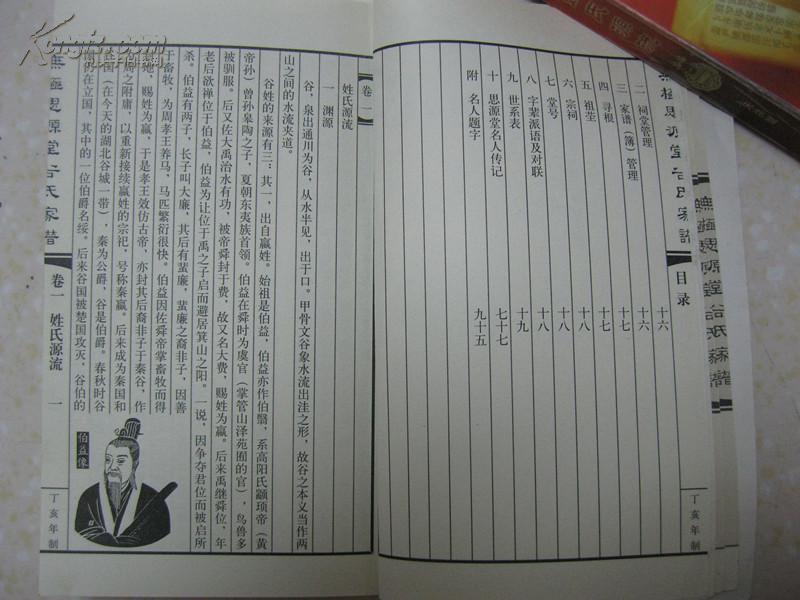 目录
二 祠堂管理 十六
三 家谱（簿）管理 十六
四 寻根 十七
五 祖茔 十七
六 宗祠 十八
七 堂号 十八
八 字辈派语及对联 十八
九 世系表 十九
十 思源堂名人传记 七十七
附 名人题字 九十五
丁亥年制
卷一
姓氏源流
一 渊源
谷，泉出通川为谷，从水半见，出于口。甲骨文谷象水流出洼之形，故谷之本义当作两
山之间的水流夹道。
谷姓的来源有三：其一，出自嬴姓。始祖是伯益，伯益亦作伯翳，系高阳氏颛顼帝（黄
帝孙）曾孙皋陶之子，夏朝东夷族首领。伯益在舜时为虞官（掌管山泽苑囿的官），鸟兽多
被驯服。后又佐大禹治水有功，被帝舜封于费，故又名大费，赐姓为嬴。后来禹继舜位，年
老后欲禅位于伯益，伯益为让位于禹之子启而避居箕山之阳。一说，因争夺君位而被启所
杀。伯益有两子，长子叫大廉，其后有蜚廉，蜚廉之裔非子，因善
于畜牧，为周孝王养马，马匹繁衍很快。伯益因佐舜帝掌畜牧而得
地，赐姓为嬴，于是孝王效仿古帝，亦封其后裔非子于秦谷，作
周之附庸，以重新接续嬴姓的宗祀，号称秦嬴。后来成为秦国和
国（在今天的湖北谷城一带），秦为公爵，谷是伯爵。春秋时谷
的在立国，其中的一位伯爵名绥。后来谷国被楚国攻灭，谷伯的
伯益像
思源堂谷氏家谱
卷一 姓氏源流 一
丁亥年制